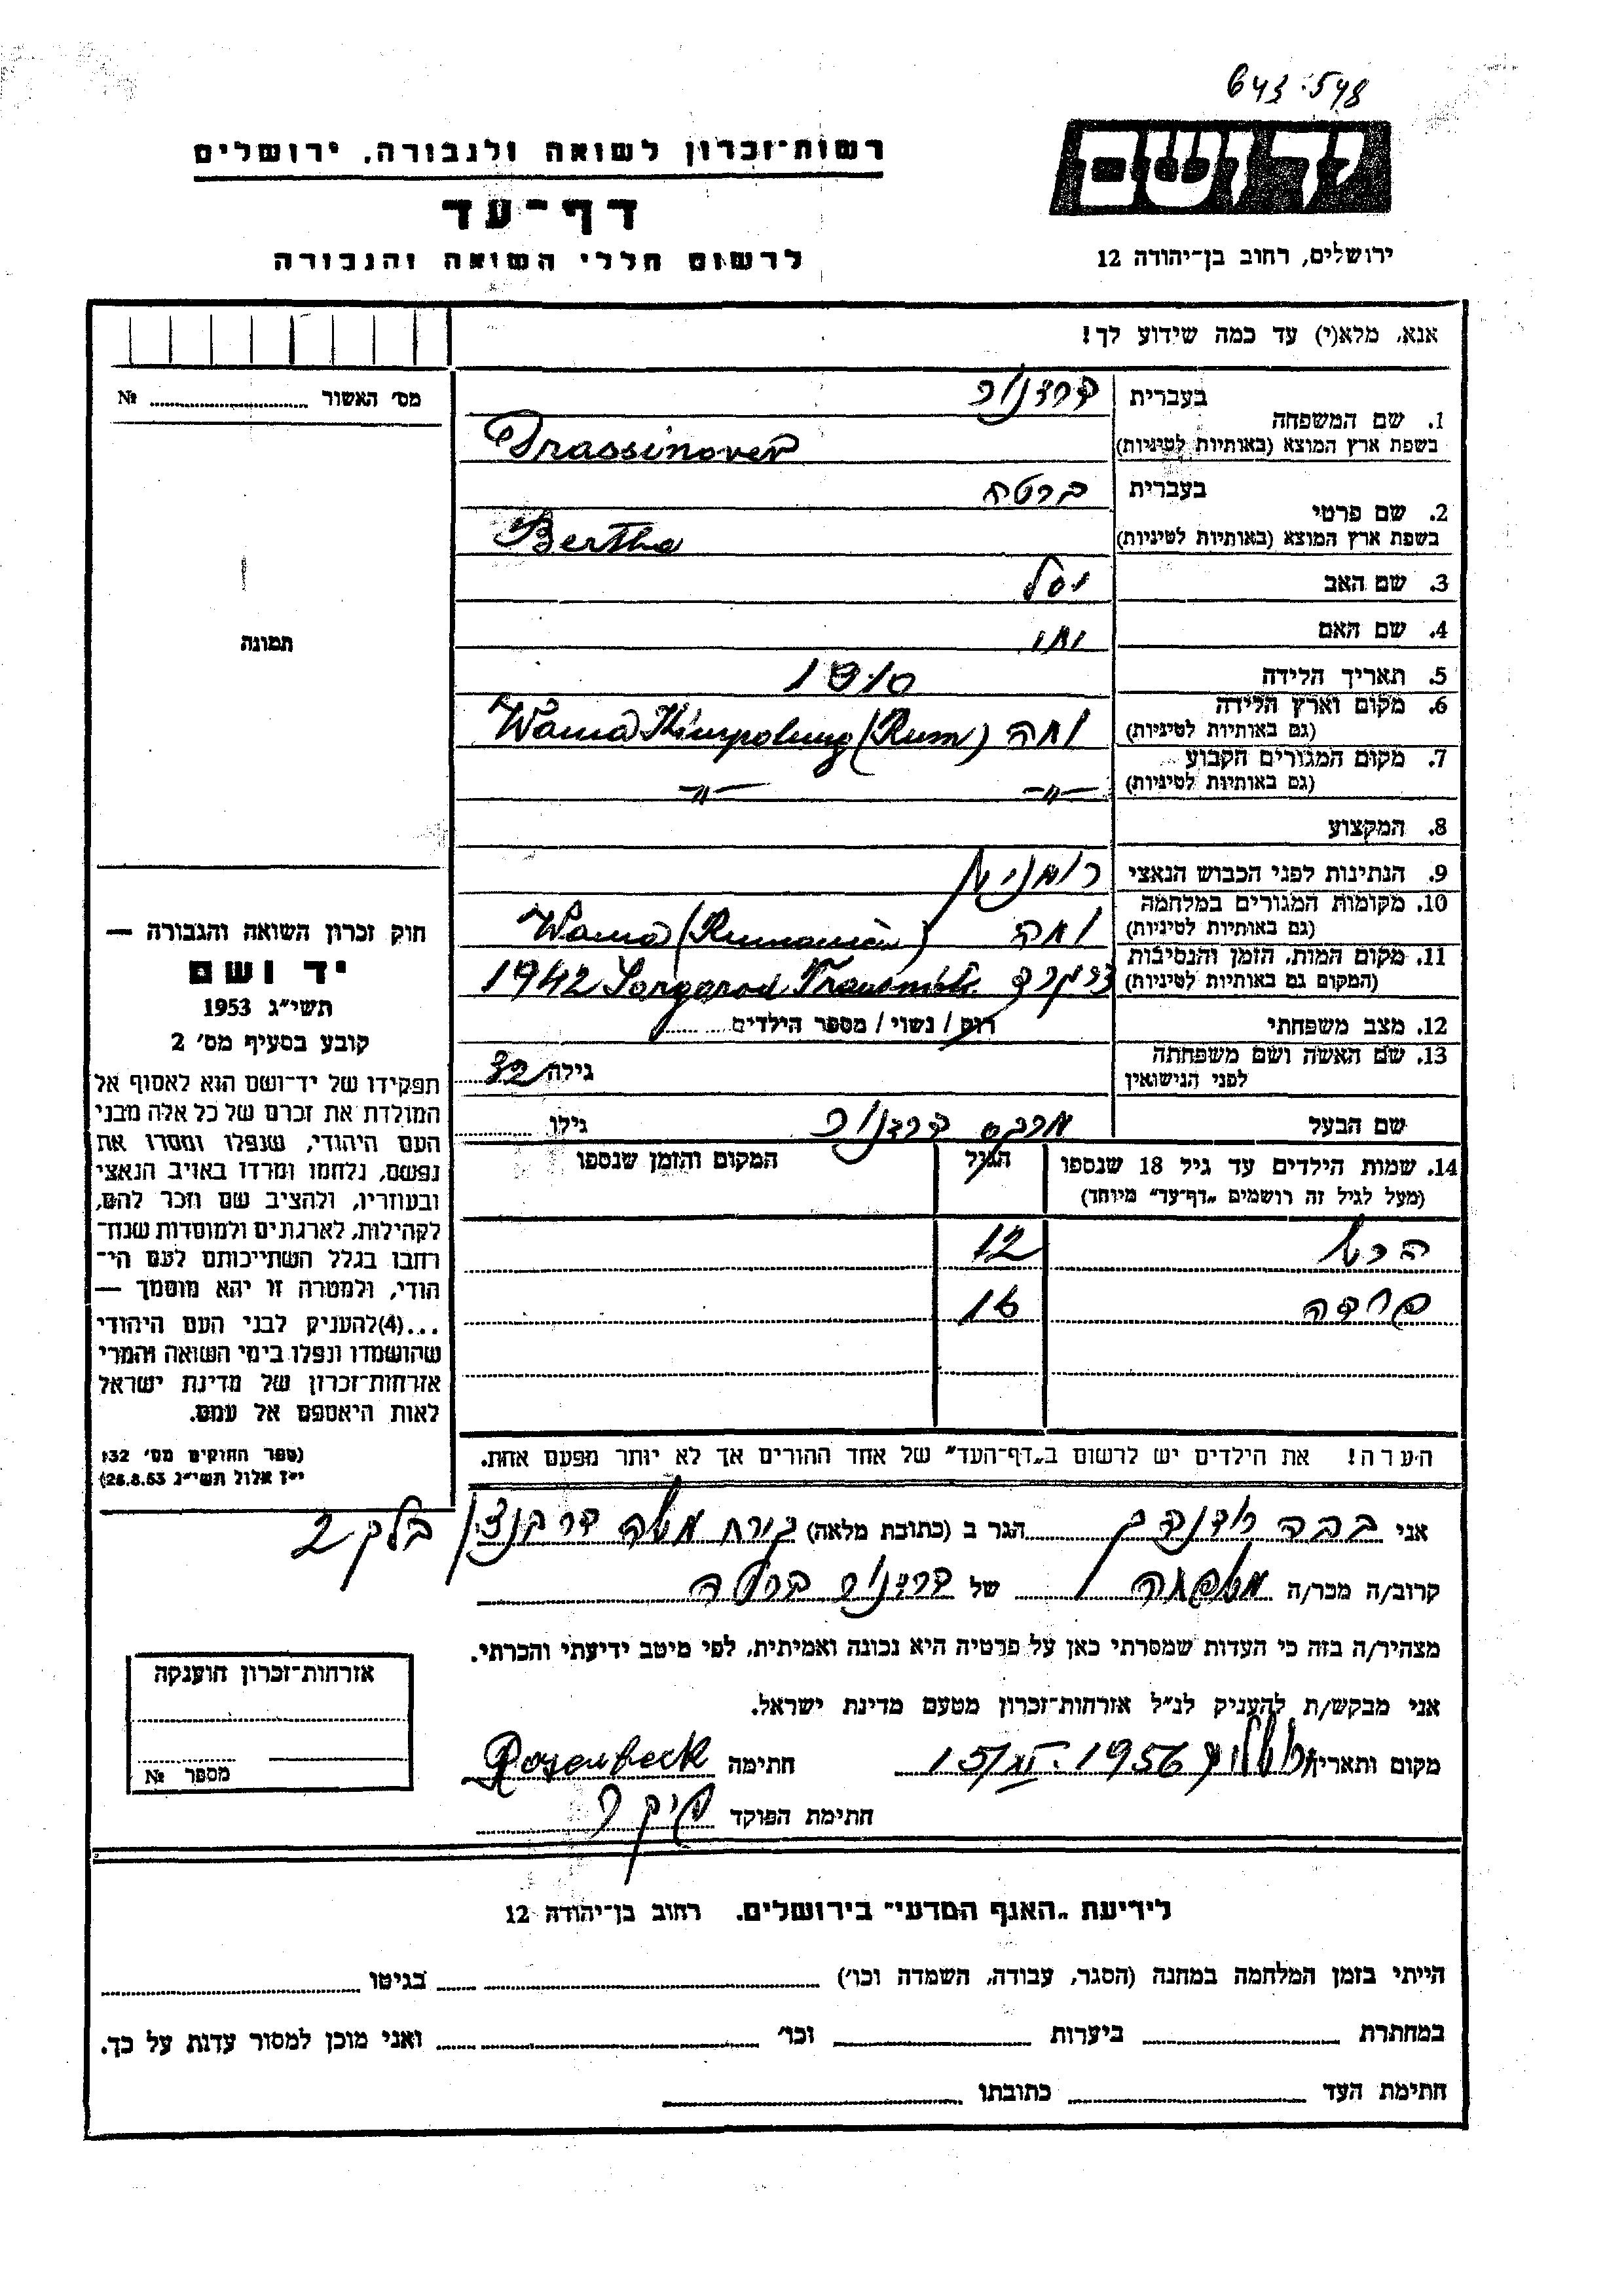 643.548
יד ושם
ירושלים, רחוב בן־יהודה 12
רשות־זכרון לשואה ולגבורה, ירושלים
דף־עד
לרשום חללי השואה והגבורה
אנא, מלא(י) עד כמה שידוע לך!
מס׳ האשור № ........
תמונה
1. שם המשפחה בעברית
בשפת ארץ המוצא (באותיות לטיניות) Drassinover
2. שם פרטי בעברית ברטה
בשפת ארץ המוצא (באותיות לטיניות) Bertha
3. שם האב יסל
4. שם האם
5. תאריך הלידה 1910
6. מקום וארץ הלידה (גם באותיות לטיניות) ומה Wama Kimpolung (Rum)
7. מקום המגורים הקבוע (גם באותיות לטיניות) -"- -"-
8. המקצוע
9. הנתינות לפני הכבוש הנאצי רומנית
10. מקומות המגורים במלחמה (גם באותיות לטיניות) ומה Wama (Rumanien)
11. מקום המות, הזמן והנסיבות (המקום גם באותיות לטיניות) 1942
12. מצב משפחתי רווק / נשוי / מספר הילדים ........
13. שם האשה ושם משפחתה לפני הנישואין גילה 32
שם הבעל מרקס גילו ........
14. שמות הילדים עד גיל 18 שנספו
(מעל לגיל זה רושמים „דף־עד” מיוחד)
הגיל
המקום והזמן שנספו
12
פרידה 16
הערה! את הילדים יש לרשום ב„דף־העד” של אחד ההורים אך לא יותר מפעם אחת.
חוק זכרון השואה והגבורה —
יד ושם
תשי״ג 1953
קובע בסעיף מס׳ 2
תפקידו של יד־ושם הוא לאסוף אל
המולדת את זכרם של כל אלה מבני
העם היהודי, שנפלו ומסרו את
נפשם, נלחמו ומרדו באויב הנאצי
ובעוזריו, ולהציב שם וזכר להם,
לקהילות, לארגונים ולמוסדות שנח־
רבו בגלל השתייכותם לעם הי־
הודי, ולמטרה זו יהא מוסמך —
...(4)להעניק לבני העם היהודי
שהושמדו ונפלו בימי השואה והמרי
אזרחות־זכרון של מדינת ישראל
לאות היאספם אל עמם.
(ספר החוקים מס׳ 132
י״ז אלול תשי״ג 28.8.53)
אני הגר ב (כתובת מלאה) בלק 2
קרוב/ה מכר/ה משפחה של ברטה
מצהיר/ה בזה כי העדות שמסרתי כאן על פרטיה היא נכונה ואמיתית, לפי מיטב ידיעתי והכרתי.
אני מבקש/ת להעניק לנ״ל אזרחות־זכרון מטעם מדינת ישראל.
מקום ותאריך 1956 חתימה Rosenbeck
חתימת הפוקד
אזרחות־זכרון הוענקה
מספר №
לידיעת „האגף המדעי” בירושלים, רחוב בן־יהודה 12
הייתי בזמן המלחמה במחנה (הסגר, עבודה, השמדה וכו׳) ........ בגיטו ........
במחתרת ........ ביערות ........ וכו׳ ........ ואני מוכן למסור עדות על כך.
חתימת העד ........ כתובתו ........